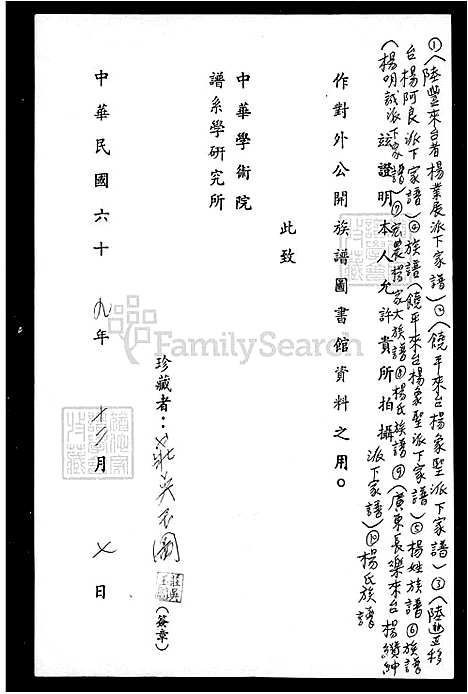 ①(陸豐來台者楊業展派下家譜)②(饒平來台楊象聖派下家譜)③(陸遷移
台楊阿良派下家譜)④族譜(饒平來台楊象聖派下家譜)⑤楊姓族譜⑥族譜
(楊明誠派下家譜)⑦宏農楊家大族譜⑧楊氏族譜⑨(廣東長樂來台楊纘紳
派下家譜)⑩楊氏族譜
玆證明本人允許貴所拍攝
作對外公開族譜圖書館資料之用。
此致
中華學術院
譜系學研究所
珍藏者：莊吳玉圖
(簽章)
中華民國六十九年十二月七日
FamilySearch